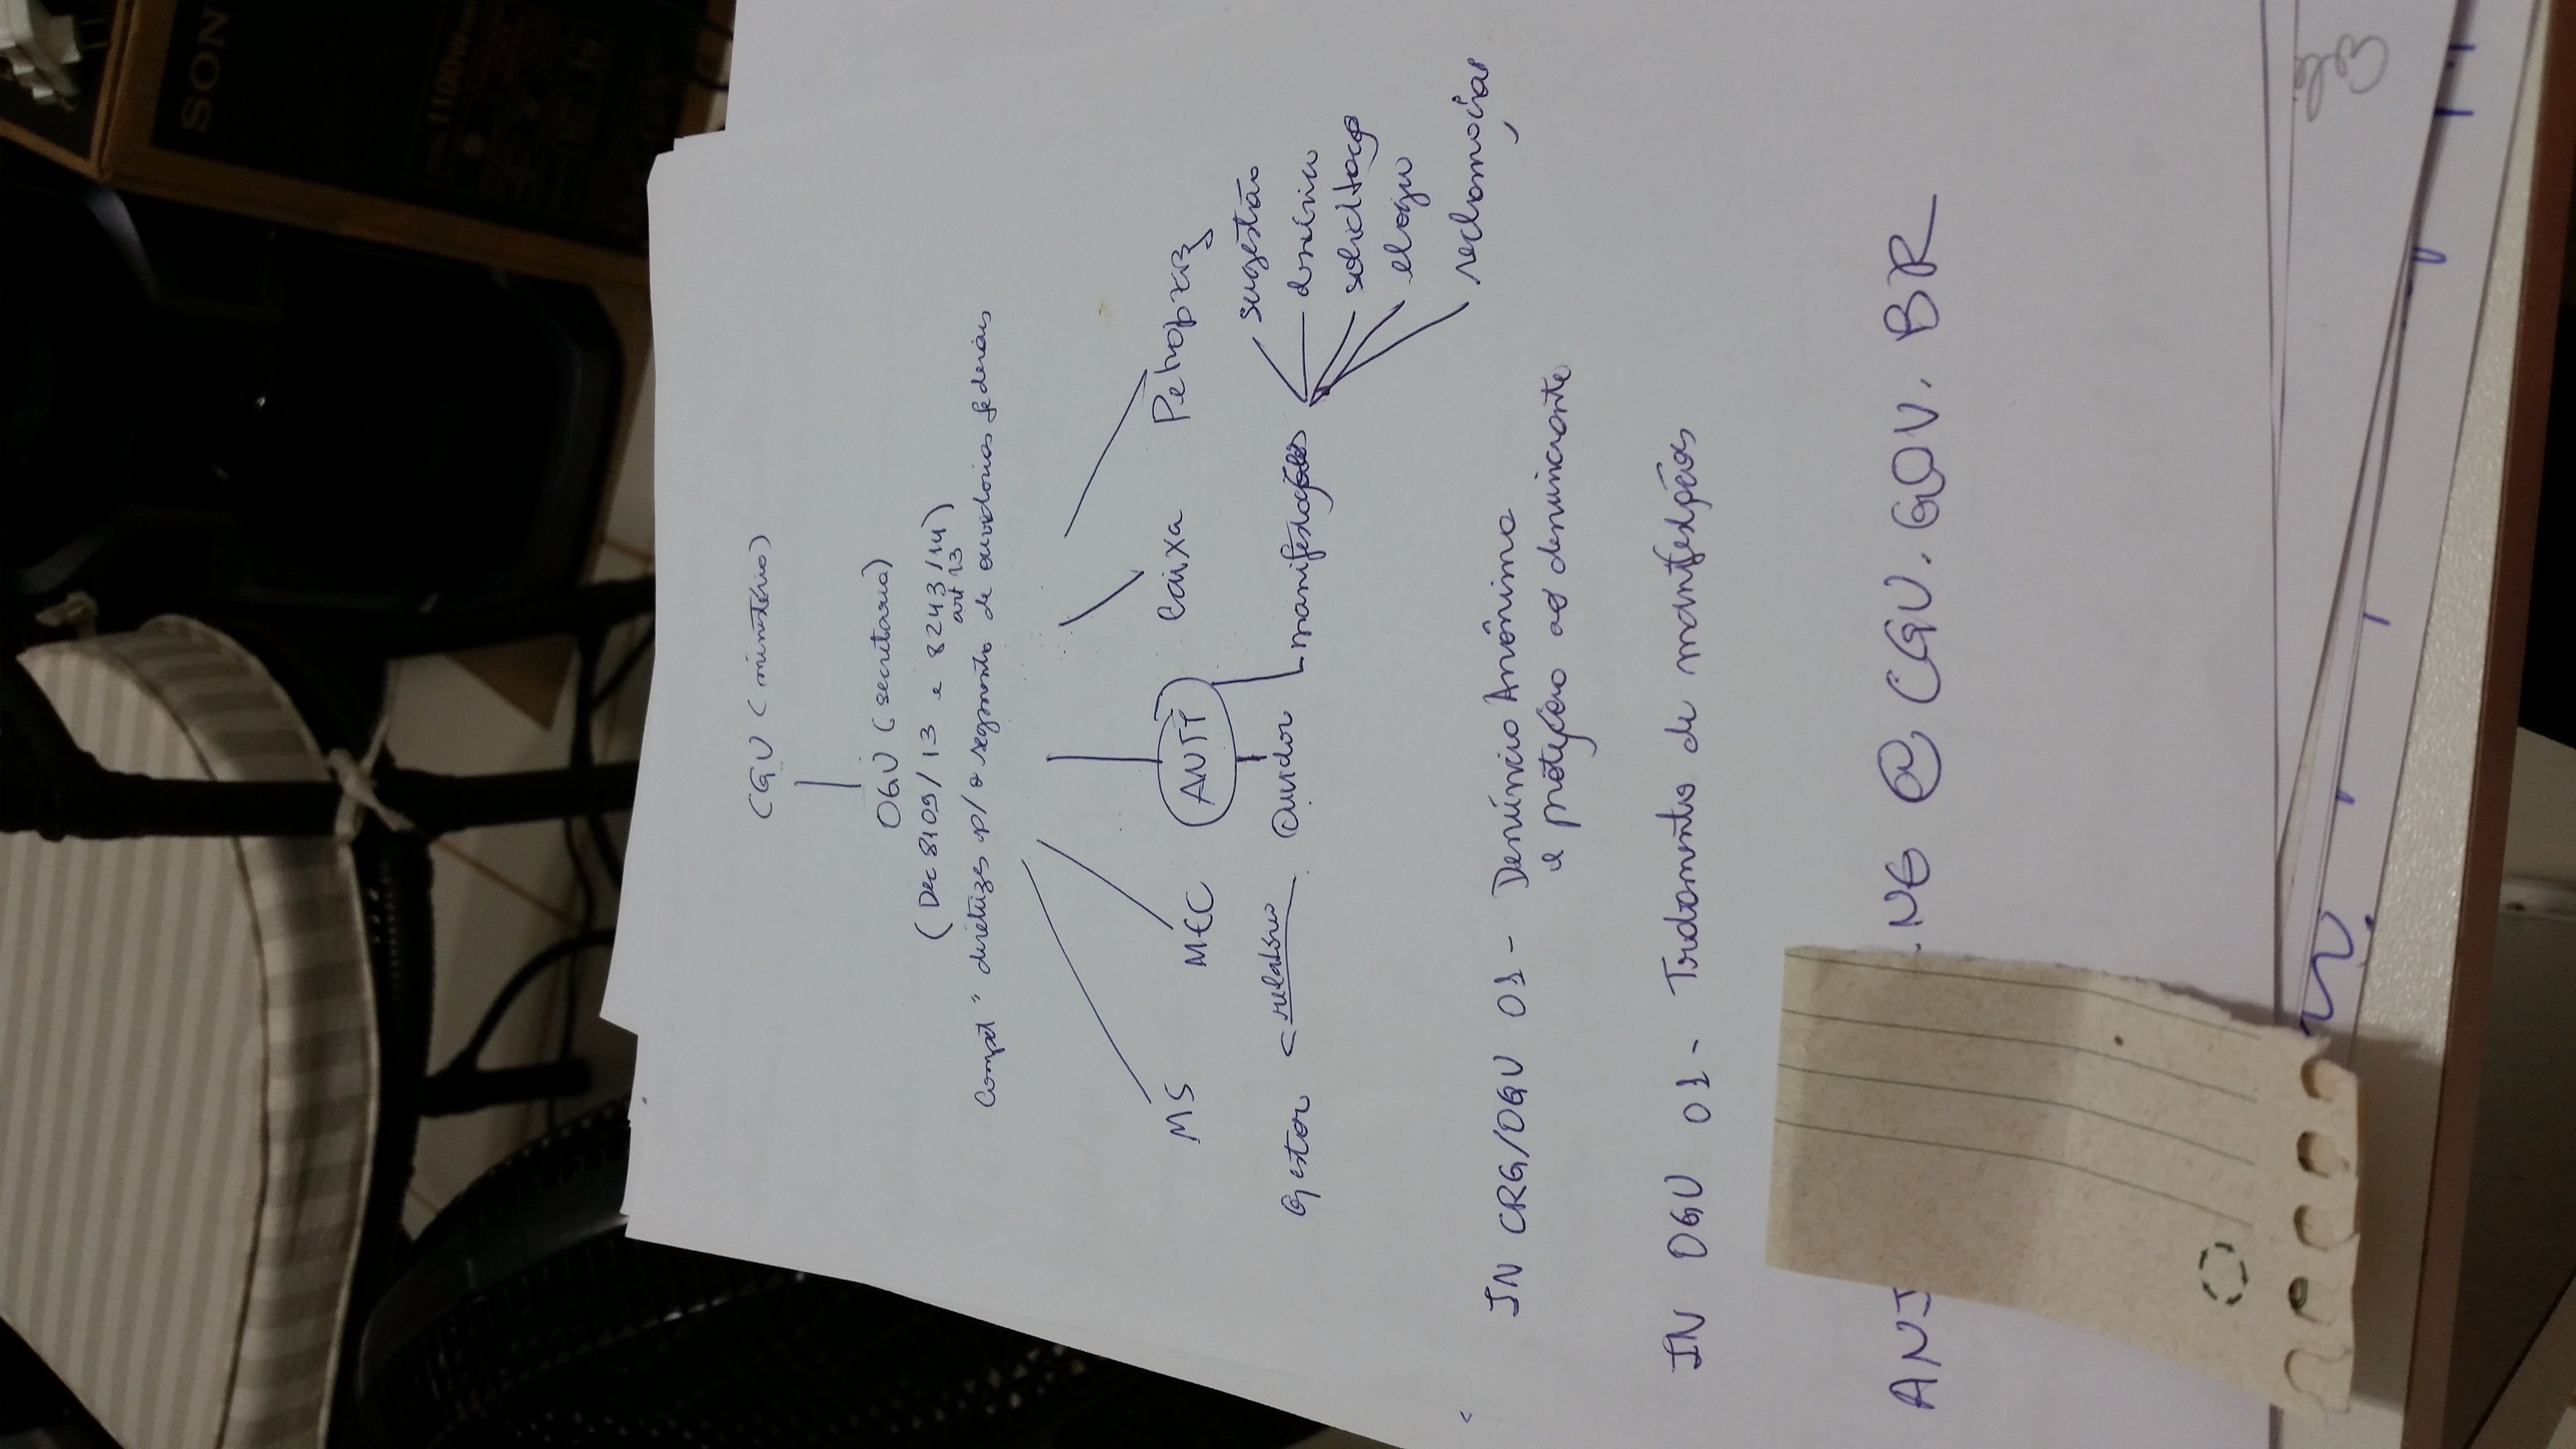 SON
1100W
CGU (ministério)
OGU (secretaria)
(Dec 8109/13 e 8243/14)
art 13
Compet " diretrizes p/ o segmento de ouvidorias federais
MS MEC ANTT Caixa Petrobras
Gestor relatório Ouvidor manifestações
sugestão
denúncia
solicitação
elogio
reclamação
IN CRG/OGU 01 - Denúncia Anônima
e proteção ao denunciante
IN OGU 01 - Tratamento de manifestações
ANJ NG @ CGU.GOV.BR